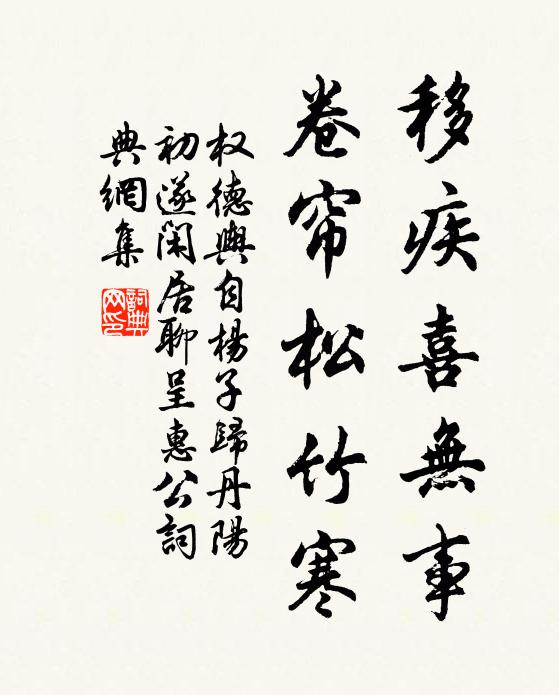 移疾喜無事
卷帘松竹寒
权德輿自楊子歸丹陽
初遂闲居聊呈惠公詞
典網集
詞典网印